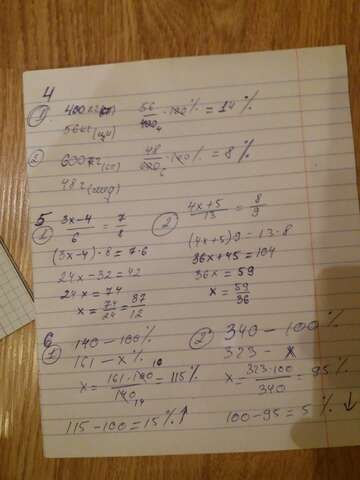 4
1) 400 кг 56/400 · 100% = 14%
56 кг (щи)
2) 600 г 48/600 · 100% = 8%
48 г
5
1) (3x-4)/6 = 7/8
(3x-4)·8 = 7·6
24x - 32 = 42
24x = 74
x = 74/24 = 37/12
2) (4x+5)/13 = 8/9
(4x+5)9 = 13·8
36x + 45 = 104
36x = 59
x = 59/36
6
1) 140 - 100%
161 - x%
x = 161·100/140 = 115%
115 - 100 = 15% ↑
2) 340 - 100%
323 - x
x = 323·100/340 = 95%
100 - 95 = 5% ↓